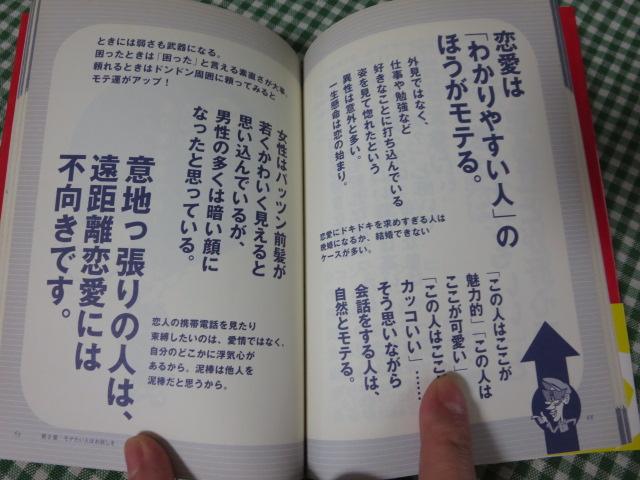 恋愛は
「わかりやすい人」の
ほうがモテる。
外見ではなく、
仕事や勉強など
好きなことに打ち込んでいる
姿を見て惚れたという
異性は意外と多い。
一生懸命は恋の始まり。
恋愛にドキドキを求めすぎる人は
晩婚になるか、結婚できない
ケースが多い。
「この人はここが
魅力的」「この人は
ここが可愛い」
「この人はここ
カッコいい」……
そう思いながら
会話をする人は、
自然とモテる。
ときには弱さも武器になる。
困ったときは「困った」と言える素直さが大事。
頼れるときはドンドン周囲に頼ってみると
モテ運がアップ！
女性はパッツン前髪が
若くかわいく見えると
思い込んでいるが、
男性の多くは暗い顔に
なったと思っている。
意地っ張りの人は、
遠距離恋愛には
不向きです。
恋人の携帯電話を見たり
束縛したいのは、愛情ではなく、
自分のどこかに浮気心が
あるから。泥棒は他人を
泥棒だと思うから。